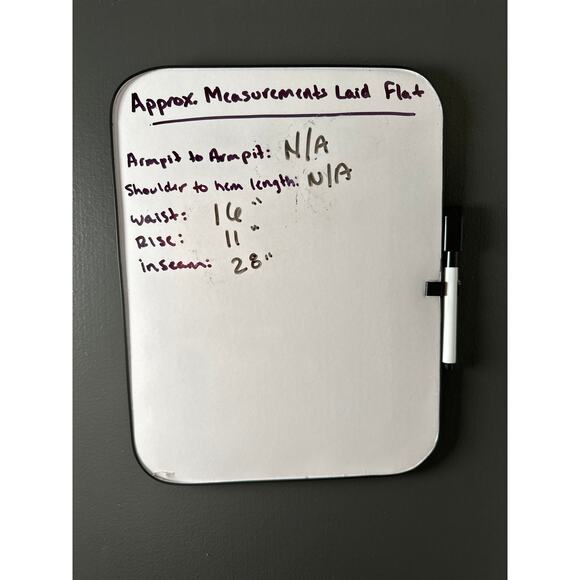 Approx. Measurements Laid Flat
Armpit to Armpit: N/A
Shoulder to hem length: N/A
Waist: 16"
Rise: 11"
inseam: 28"